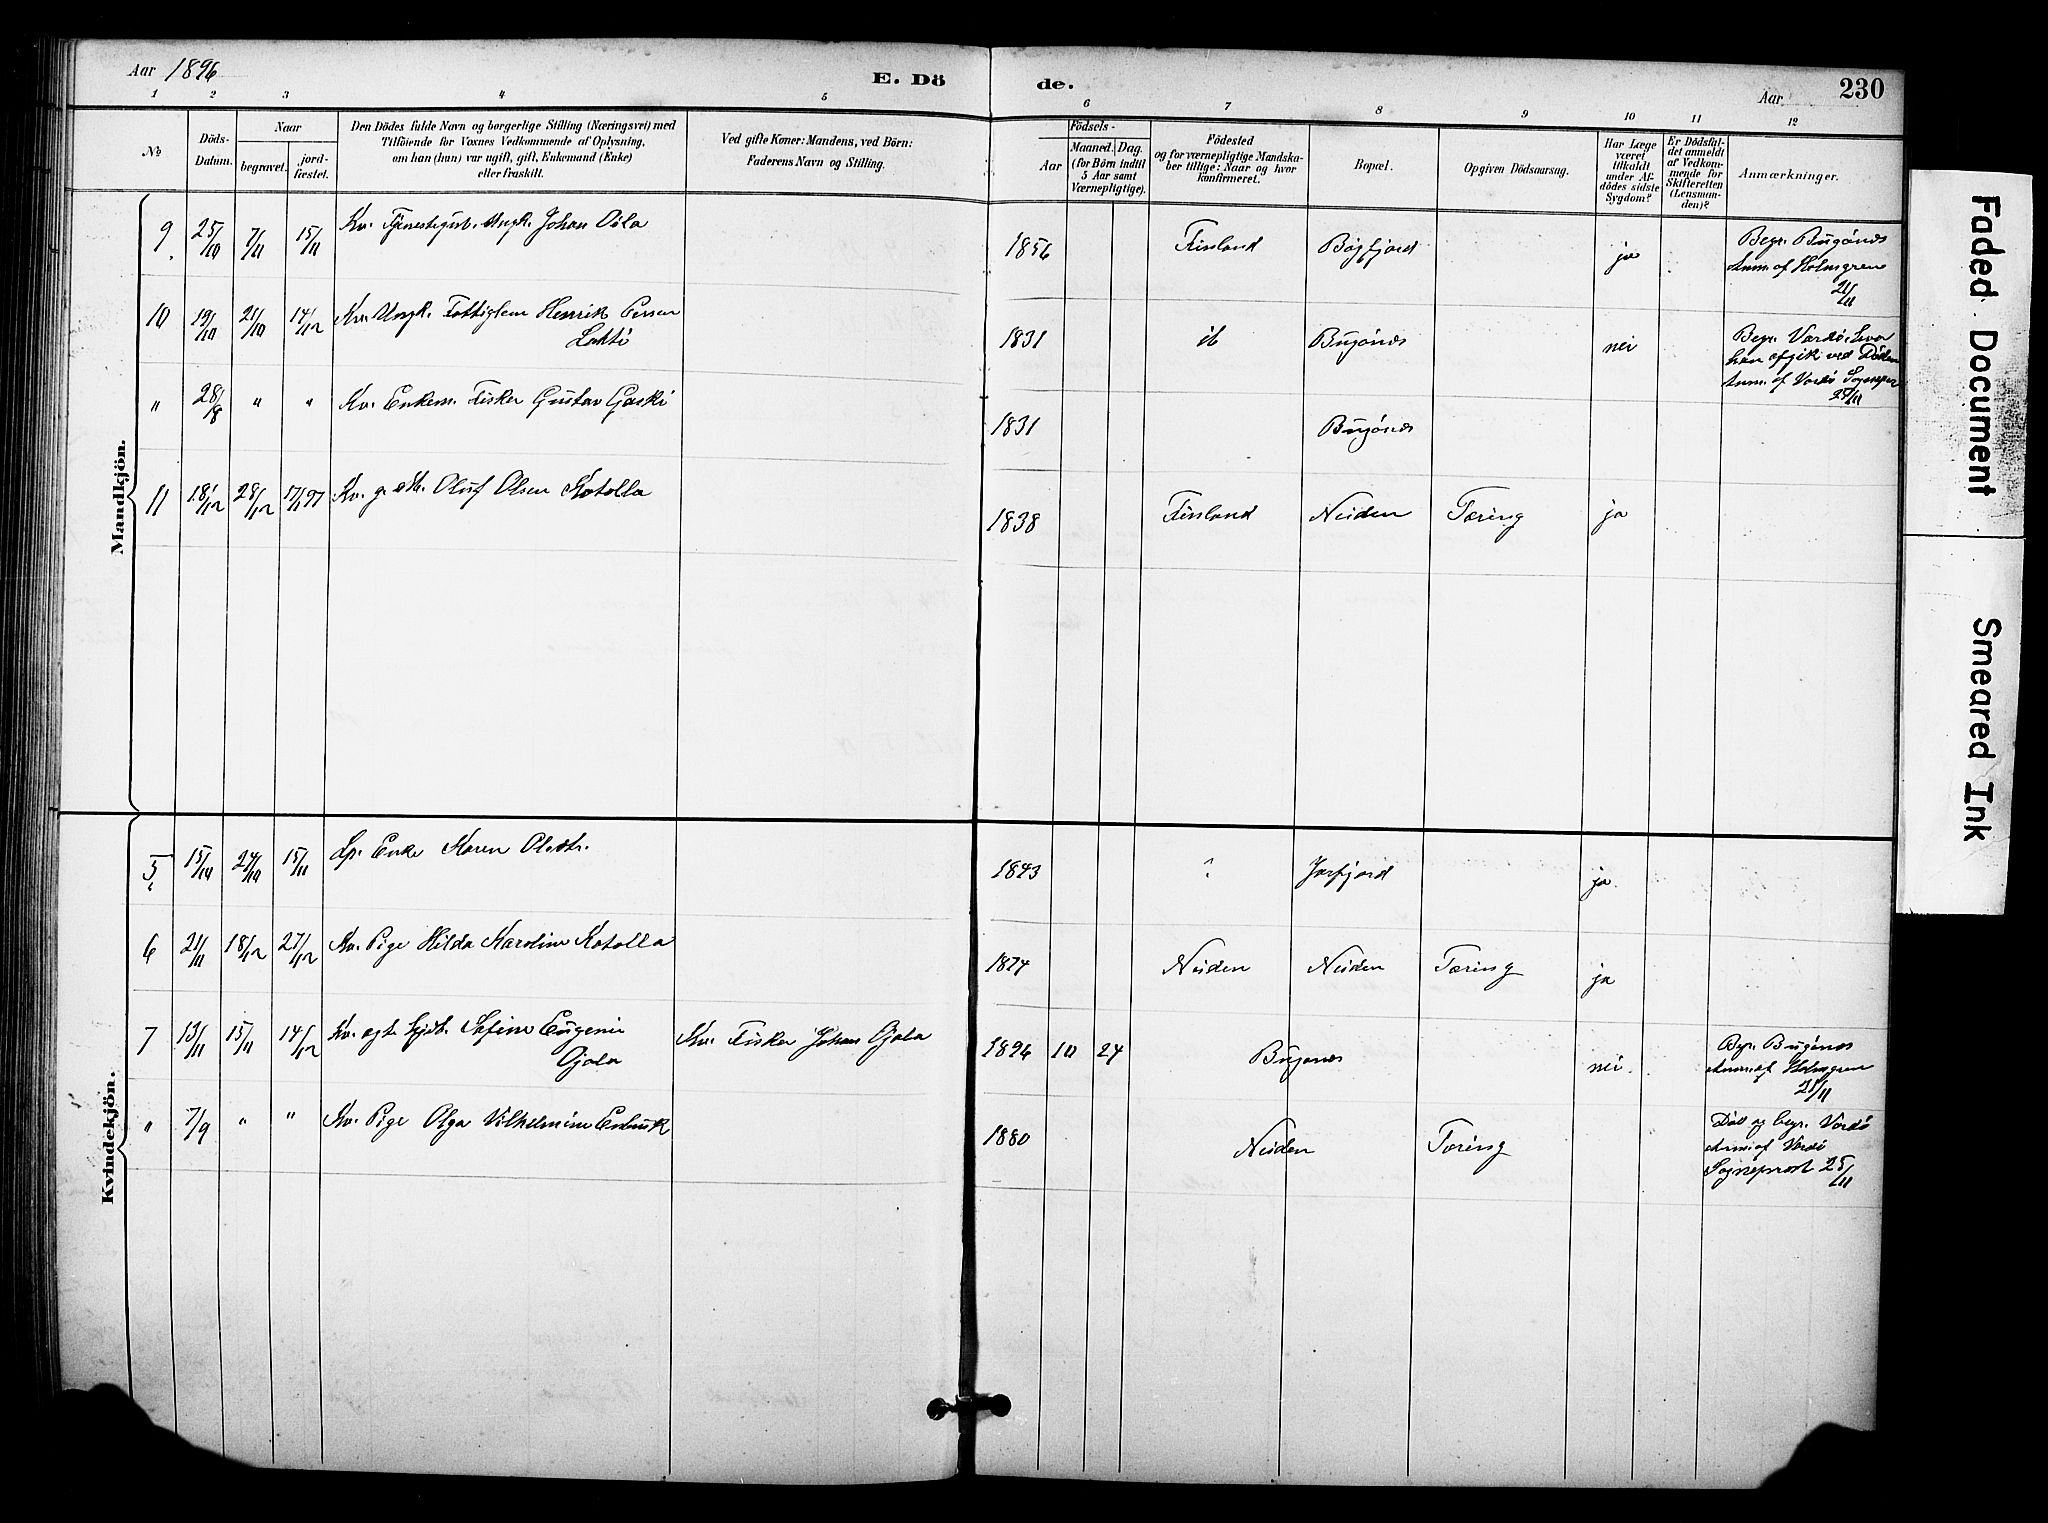 Aar 1896
E. Dö de.
Aar
230
1 2 3 4 5 6 7 8 9 10 11 12
No
Döds-
Datum.
Naar
begravet.
jord-
fæstet.
Den Dödes fulde Navn og borgerlige Stilling (Næringsvei) med
Tilföiende for Voxnes Vedkommende af Oplysning,
om han (hun) var ugift, gift, Enkemand (Enke)
eller fraskilt.
Ved gifte Koner: Mandens, ved Börn:
Faderens Navn og Stilling.
Födsels-
Aar
Maaned. Dag.
(for Börn indtil
5 Aar samt
Værnepligtige).
Födested
og for værnepligtige Mandska-
ber tillige: Naar og hvor
konfirmeret.
Bopæl.
Opgiven Dödsaarsag.
Har Læge
været
tilkaldt
under Af-
dödes sidste
Sygdom?
Er Dödsfal-
det anmeldt
af Vedkom-
mende for
Skifteretten
(Lensman-
den)?
Anmærkninger.
Mandkjön.
9. 25/10 7/11 15/11 Kv. Tjenestegut. Ungk. Johan Oila 1856 Finland Bøgfjord ja Begr. Bugønes
Anm. af Holmgren
21/11
10 19/10 21/10 14/12 Kv. Ungk. Fattiglem Henrik Persen
Lakti 1831 ib Bugønes nei Begr. Vardø, hvor
han afgik ved Døden
Anm. af Vardø Sognepr
25/11
" 28/8 " " Kv. Enkem. Fisker Gustav Gaski 1831 Bugønes
11 18/12 28/12 17/1 97 Kv. g. Oluf Olsen Kotolla 1838 Finland Neiden Tæring ja
Kvindekjön.
5. 15/10 24/10 15/11 Lp. Enke Karen Olsdtr. 1843 ? Jarfjord ja.
6 21/11 18/12 27/12 Kv. Pige Hilda Karoline Kotolla 1874 Neiden Neiden Tæring ja
7 13/11 15/11 14/12 Kv. egte Sofine Eugenie
Gjala Kv. Fisker Johan Gjala 1896 10 24 Bugønes nei. Begr. Bugønes
Anm. af Holmgren
21/11
" 7/9 " " Kv. Pige Olga Vilhelmine 1880 Neiden Tæring Død og begr. Vardø
Anm. af Vardø
Sogneprest 25/11
Faded Document
Smeared Ink